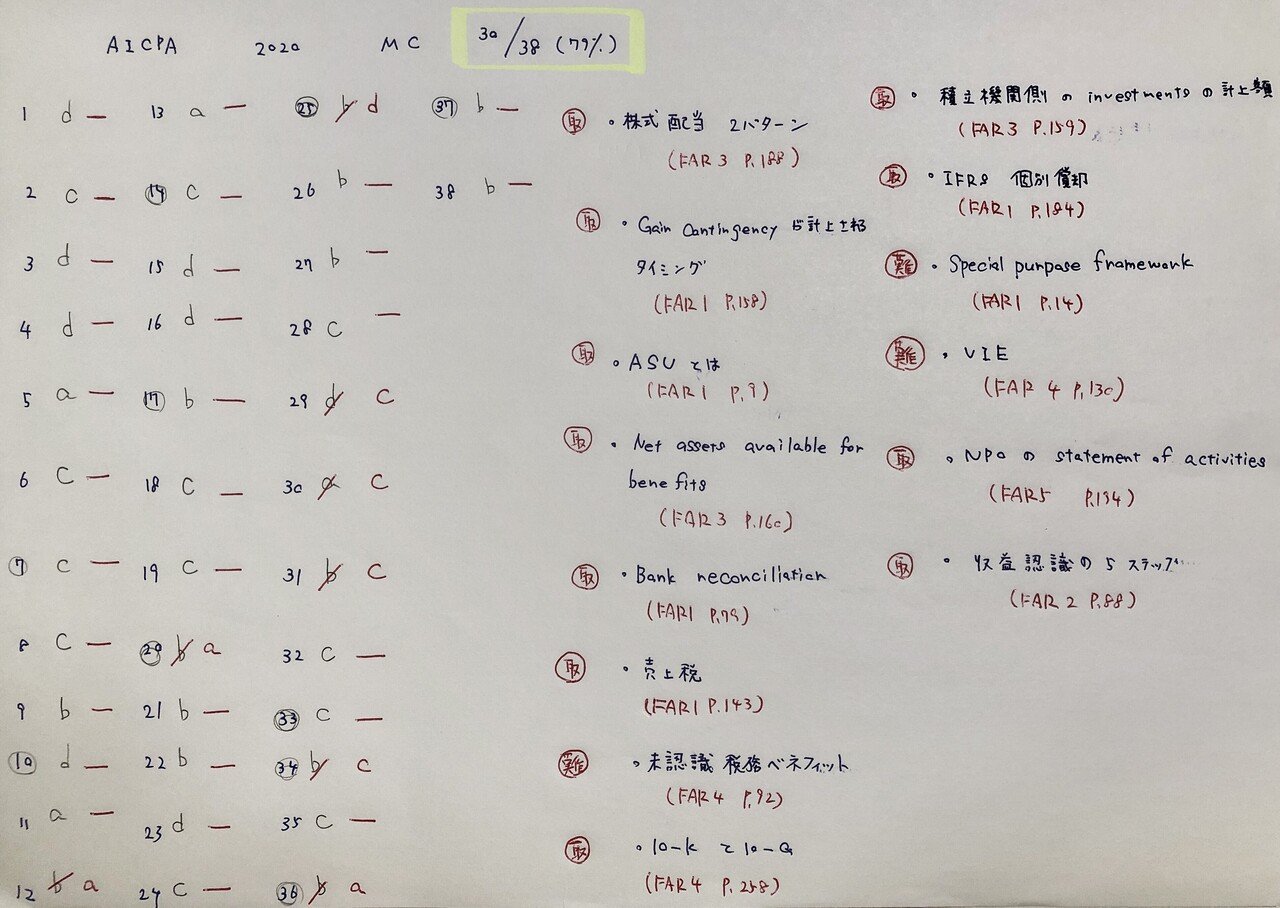 AICPA 2020 MC 30/38 (79%)
1 d —
2 c —
3 d —
4 d —
5 a —
6 c —
7 c —
8 c —
9 b —
10 d —
11 a —
12 b a
13 a —
14 c —
15 d —
16 d —
17 b —
18 c —
19 c —
20 b a
21 b —
22 b —
23 d —
24 c —
25 b d
26 b —
27 b —
28 c —
29 d c
30 a c
31 b c
32 c —
33 c —
34 b c
35 c —
36 b a
37 b —
38 b —
取 ・株式配当 2パターン
(FAR3 P.188)
取 ・Gain Contingency が計上される
タイミング
(FAR1 P.158)
取 ・ASUとは
(FAR1 P.9)
取 ・Net assets available for
benefits
(FAR3 P.160)
取 ・Bank reconciliation
(FAR1 P.79)
取 ・売上税
(FAR1 P.143)
難 ・未認識税務ベネフィット
(FAR4 P.92)
取 ・10-kと10-Q
(FAR4 P.258)
取 ・積立機関側の investments の計上額
(FAR3 P.159)
取 ・IFRS 個別償却
(FAR1 P.184)
難 ・Special purpose framework
(FAR1 P.14)
難 ・VIE
(FAR4 P.130)
取 ・NPOの statement of activities
(FAR5 P.134)
取 ・収益認識の5ステップ
(FAR2 P.88)